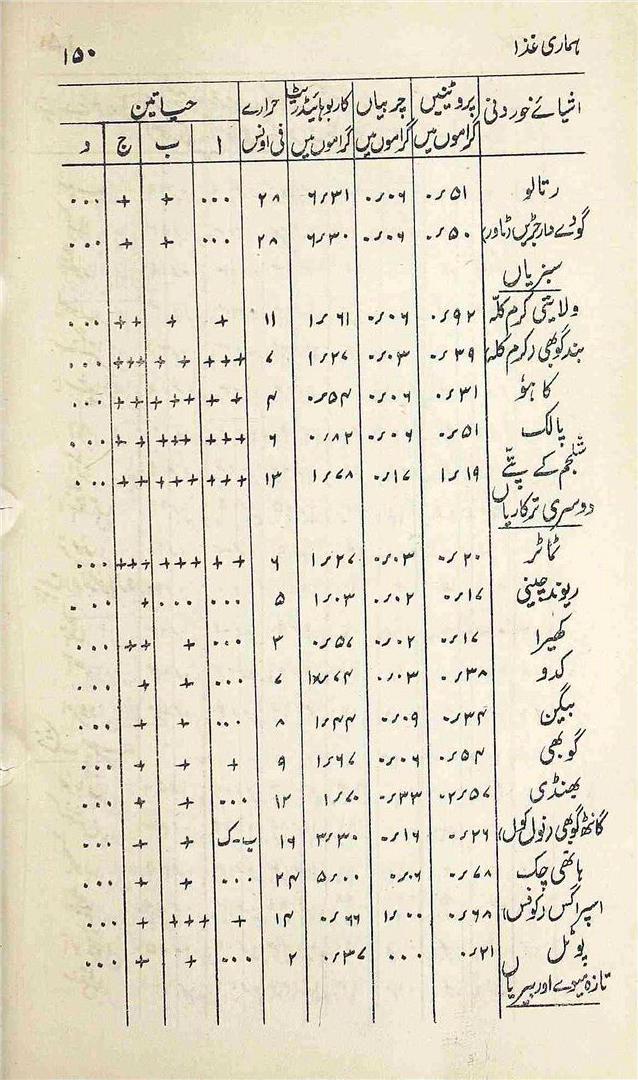 ہماری غذا ۱۵۰
اشیائے خوردنی پروٹینیں گراموں میں چربیاں گراموں میں کاربوہائیڈریٹ گراموں میں حرارے فی اونس حیاتین
ا ب ج د
رتالو ۰٫۵۱ ۰٫۰۶ ۶٫۳۱ ۲۸ ... + + ...
گودے دار جڑیں (ٹاور) ۰٫۵۰ ۰٫۰۶ ۶٫۳۰ ۲۸ ... + + ...
سبزیاں
ولایتی کرم کلہ ۰٫۹۲ ۰٫۰۶ ۱٫۶۱ ۱۱ + + ++ ...
بند گوبھی (کرم کلہ) ۰٫۳۹ ۰٫۰۳ ۱٫۲۷ ۷ +++ ++ +++ ...
کاہو ۰٫۳۱ ۰٫۰۶ ۰٫۵۴ ۴ ++ +++ ++ ...
پالک ۰٫۵۱ ۰٫۰۶ ۰٫۸۲ ۶ +++ +++ ++ ...
شلجم کے پتے ۱٫۱۹ ۰٫۱۷ ۱٫۷۸ ۱۳ +++ +++ ++ ...
دوسری ترکاریاں
ٹماٹر ۰٫۲۰ ۰٫۰۳ ۱٫۲۷ ۶ ++ +++ +++ ...
ریوند چینی ۰٫۱۷ ۰٫۰۲ ۱٫۰۳ ۵ ... ... + ...
کھیرا ۰٫۱۷ ۰٫۰۲ ۰٫۵۷ ۳ ... + ++ ...
کدو ۰٫۳۸ ۰٫۰۳ ۷ ... + + ...
بیگن ۰٫۳۴ ۰٫۰۹ ۱٫۴۴ ۸ ... + + ...
گوبھی ۰٫۵۴ ۰٫۰۶ ۱٫۶۷ ۹ + + + ...
بھنڈی ۰۲٫۵۷ ۰٫۳۳ ۱٫۷۰ ۱۲ ... + + ...
گانٹھ گوبھی (نول کول) ۰٫۲۶ ۰٫۱۶ ۳٫۳۰ ۱۹ پ-ک + + ...
ہاتھی چک ۰٫۷۸ ۰٫۰۶ ۵٫۰۰ ۲۴ ... + + ...
اسپراگس (زکوفس) ۰٫۶۸ ۱٫۰۰ ۰٫۶۶ ۱۴ + +++ + ...
پوٹل ۰٫۲۱ ۰۰۰ ۰٫۳۷ ۲ ... + + ...
تازہ میوے اور بیریاں